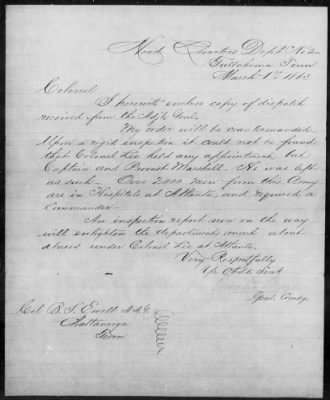 Head Quarters Dept No 2
Tullahoma Tenn
March 1st 1863
Colonel
I herewith enclose copy of dispatch
received from the Adjt Genl.
My order will be countermanded.
Upon a rigid inspection it could not be found
that Colonel Lee held any appointment but
Captain and Provost Marshall. He was left
as such. Over 2000 men from this Army
are in Hospitals at Atlanta, and required a
Commander.
An inspection report now on the way
will enlighten the department much about
abuses under Colonel Lee at Atlanta.
Very Respectfully
Yr Obdt Servt
Genl. Comdg.
Col B. S. Ewell A.A.G.
Chattanooga
Tenn